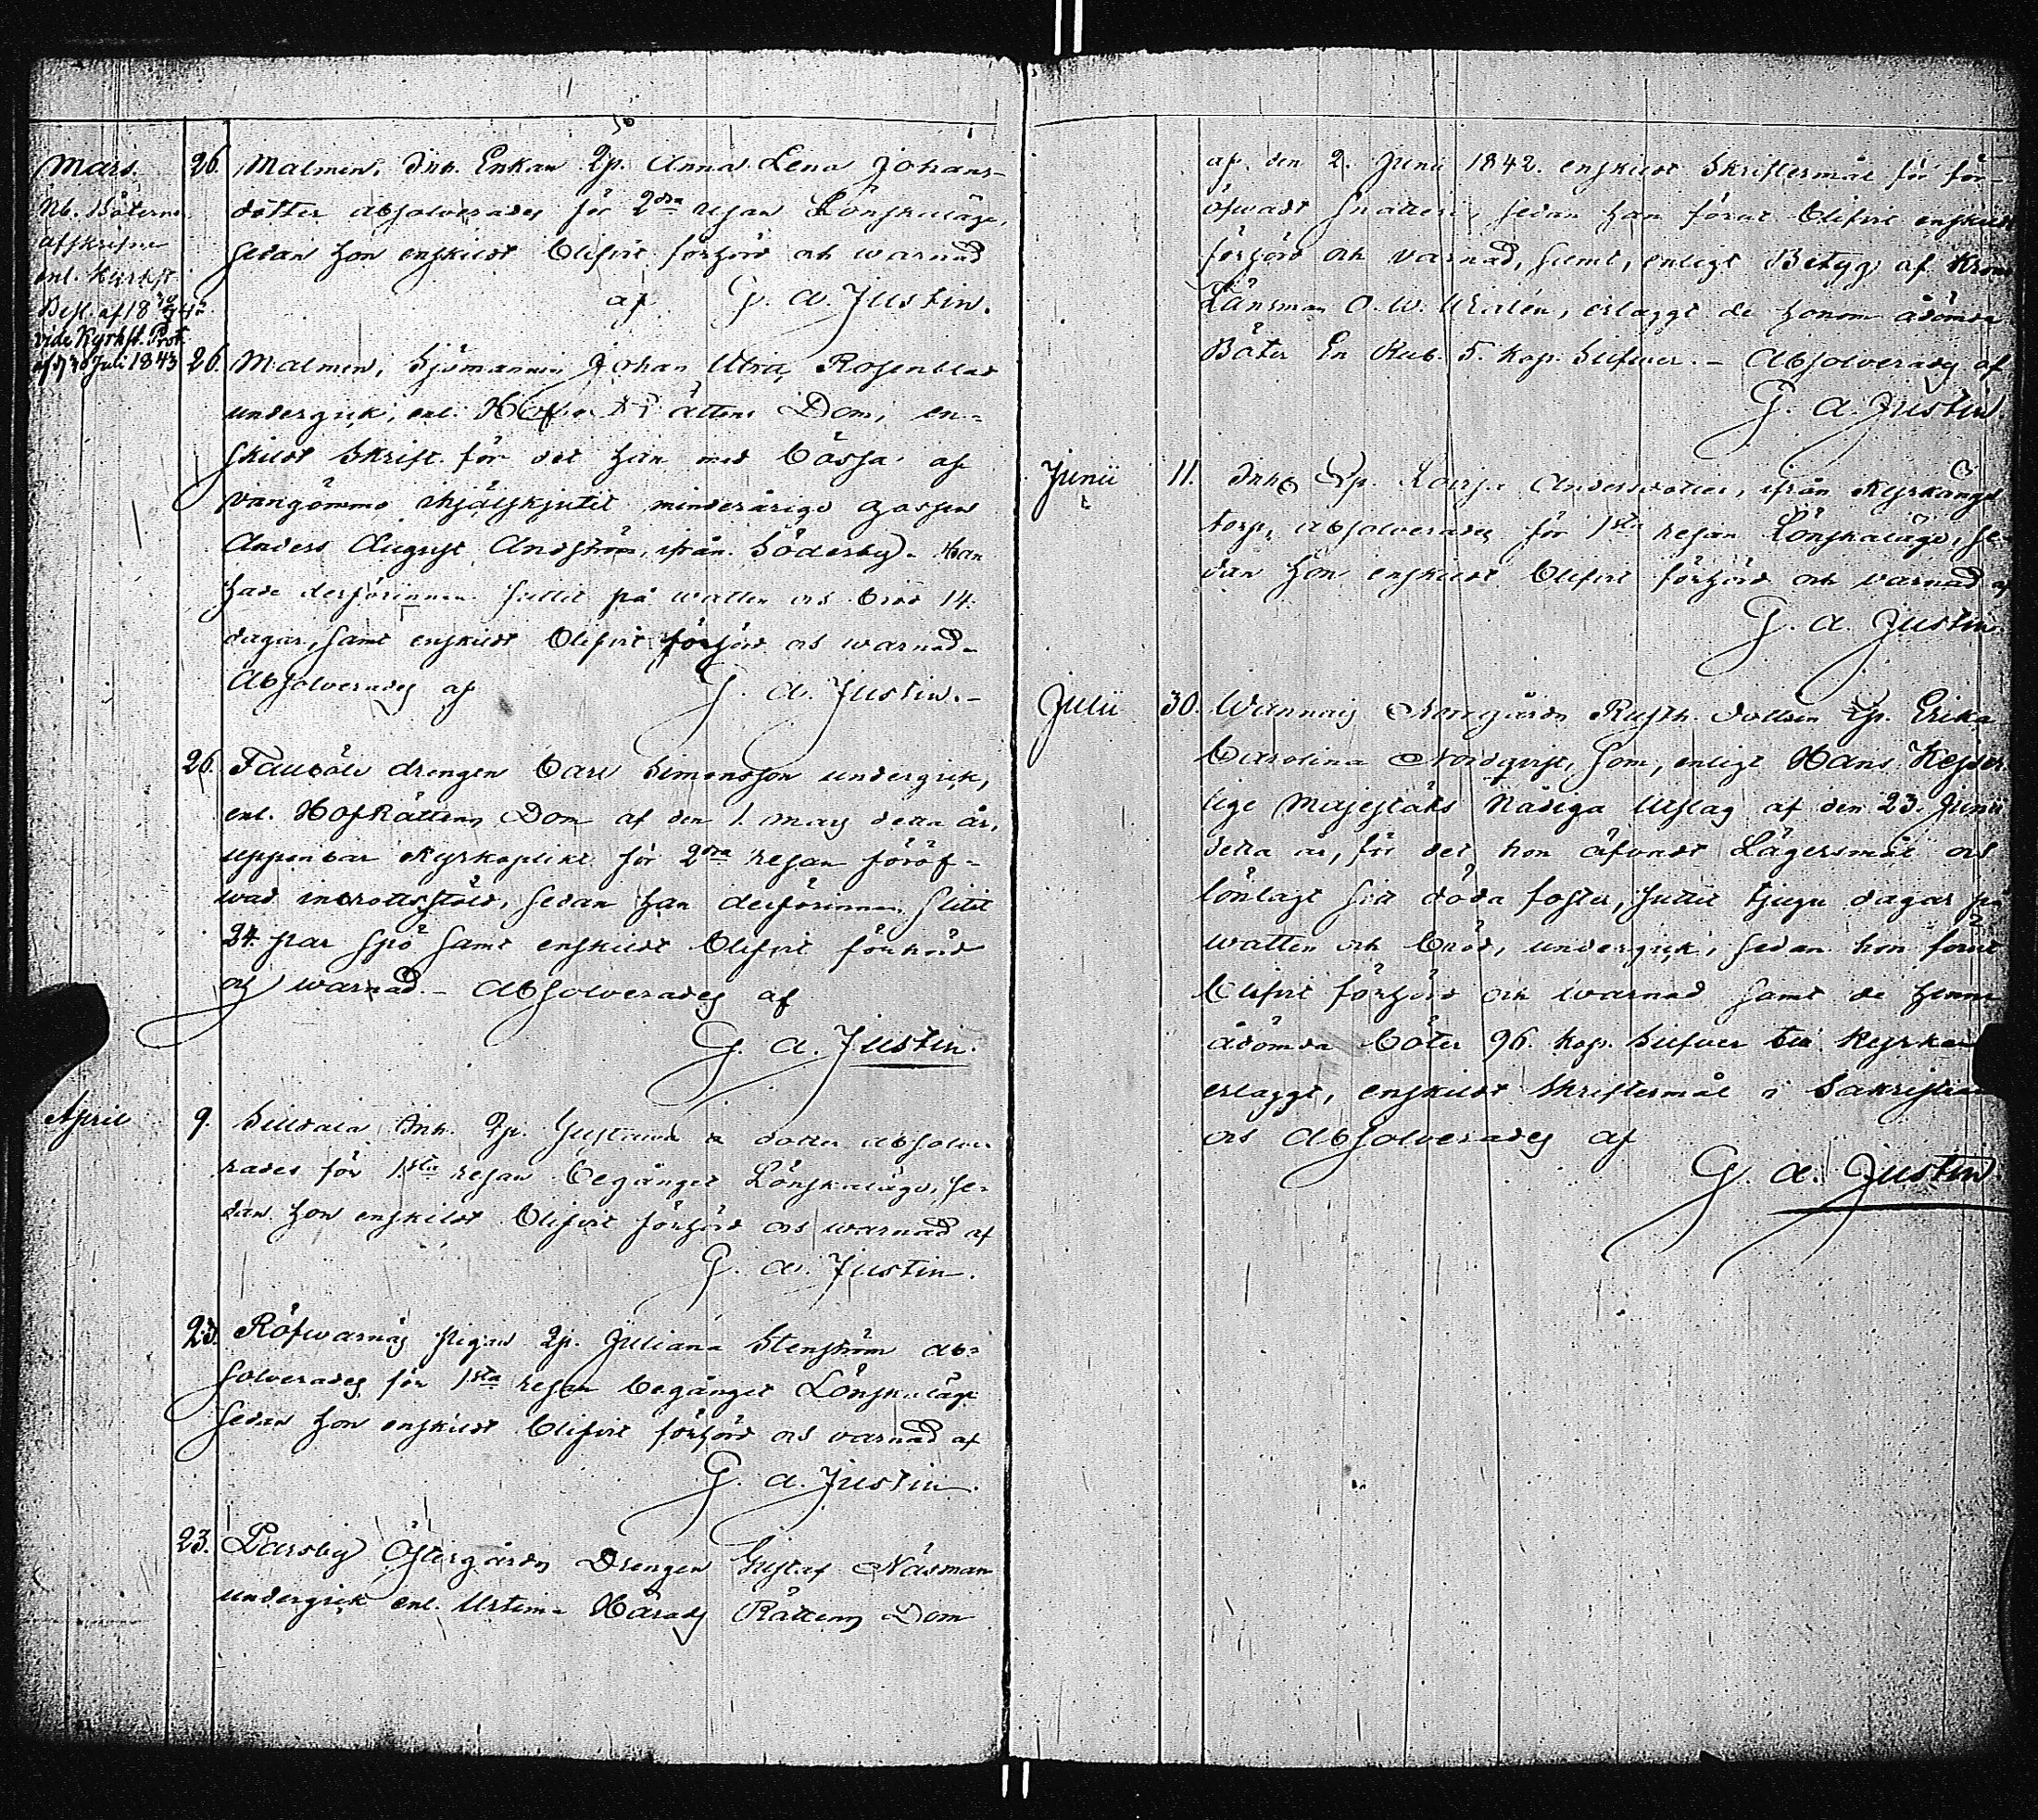 Mars.
Nb. Böterne
afskrifne
enl. Kyrkst.
Besl. af 18
vide Kyrkst. Prot.
af d. 30 Juli 1843
26. Malmen, Inh. Enkan Qp. Anna Lena Johans-
dotter absolverades för 2dra resan Lönskaläge,
sedan hon enskildt blifvit förhörd och warnad
af G. A. Justin.
26. Malmen, Sjömannen Johan Ulric Rosenblad
undergick, enl. Hofrättens Dom, en-
skildt Skrift. för det han med bössa af
vangömmo ihjälskjutit minderårige gossen
Anders August Andström, ifrån Söderby. Han
hade derförinnan suttit på watten och bröd 14.
dagar, samt enskildt blifvit förhörd och warnad.
Absolverades af G. A. Justin.-
26. drengen Carl Simonsson undergick,
enl. HofRättens Dom af den 1. Mars detta år,
uppenbar Kyrkoplikt för 2dra resan föröf-
wad inbrottsstöld, sedan han derförinnan slitit
24. par spö samt enskildt blifvit förhörd
och warnad. - Absolverades af
G. A. Justin.
April 9. Inh. Qp. Gustava dotter absolve-
rades för 1sta resan begånget Lönskaläge, se-
dan hon enskildt blifvit förhörd och warnad af
G. A. Justin.
23. Röfwarnäs pigan Qp. Juliana Stenström ab-
solverades för 1sta resan begånget Lönskaläge
sedan hon enskildt blifvit förhörd och varnad af
G. A. Justin.
23. Parsby Östergårds Drengen Gustaf Näsman
undergick enl. Urtima Härads Rättens Dom
af den 2. Junii 1842. enskildt Skriftermål för för-
öfwadt snatteri, sedan han förut blifvit enskildt
förhörd och varnad, samt, enligt Betyg af Krono
Länsman O. W. , erlaggt de honom ådömda
Böter En Rub. 5. kop. Silfwer. - Absolverades af
G. A. Justin.
Junii 11. Inh. Qp. Andersdotter, ifrån
torp, absolverades för 1sta resan Lönskaläge, se-
dan hon enskildt blifvit förhörd och varnad af
G. A. Justin.
Julii 30. Norrgårds Rusth. dottren Qp. Erika
Carolina Nordqvist, som, enligt Hans Kejser
lige Majestäts Nådiga Utslag af den 23. Junii
detta år, för det hon öfvadt Lägersmål och
lönlagt sitt döda foster, suttit tjugu dagar på
watten och bröd, undergick, sedan hon förut
blifvit förhörd och warnad samt de henne
ådömda böter 96. kop. Silfwer till Kyrkan
erlaggt, enskildt Skriftermål i Sakristian
och Absolverades af
G. A. Justin.